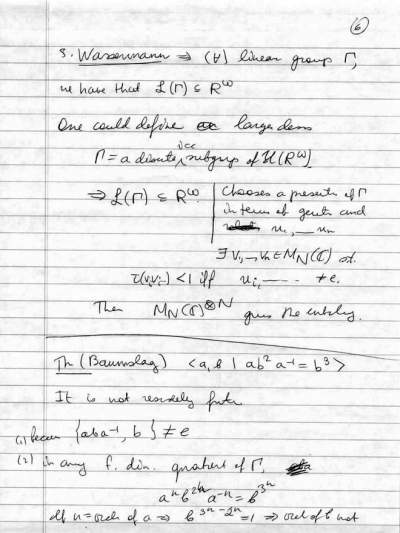 6
3. Wassermann ⇒ (∀) linear group Γ,
we have that L(Γ) ⊆ R^ω
One could define larger class
Γ = a discrete icc subgroup of U(R^ω)
⇒ L(Γ) ⊆ R^ω.
Chooses a present. of Γ
in terms of gents and
u₁, — uₙ
∃ v₁, —, vₙ ∈ M_N(ℂ) st.
τ(v_i v_i …) < 1 iff u_i, — … ≠ e.
Then M_N(ℂ)^⊗N gives the embedding.
Th (Baumslag) < a, b | ab² a⁻¹ = b³ >
It is not residually finite
(1) because {aba⁻¹, b} ≠ e
(2) in any f. dim. quotient of Γ,
aⁿ b^2ⁿ a⁻ⁿ = b^3ⁿ
If n = order of a ⇒ b^3ⁿ⁻2ⁿ = 1 ⇒ order of b not